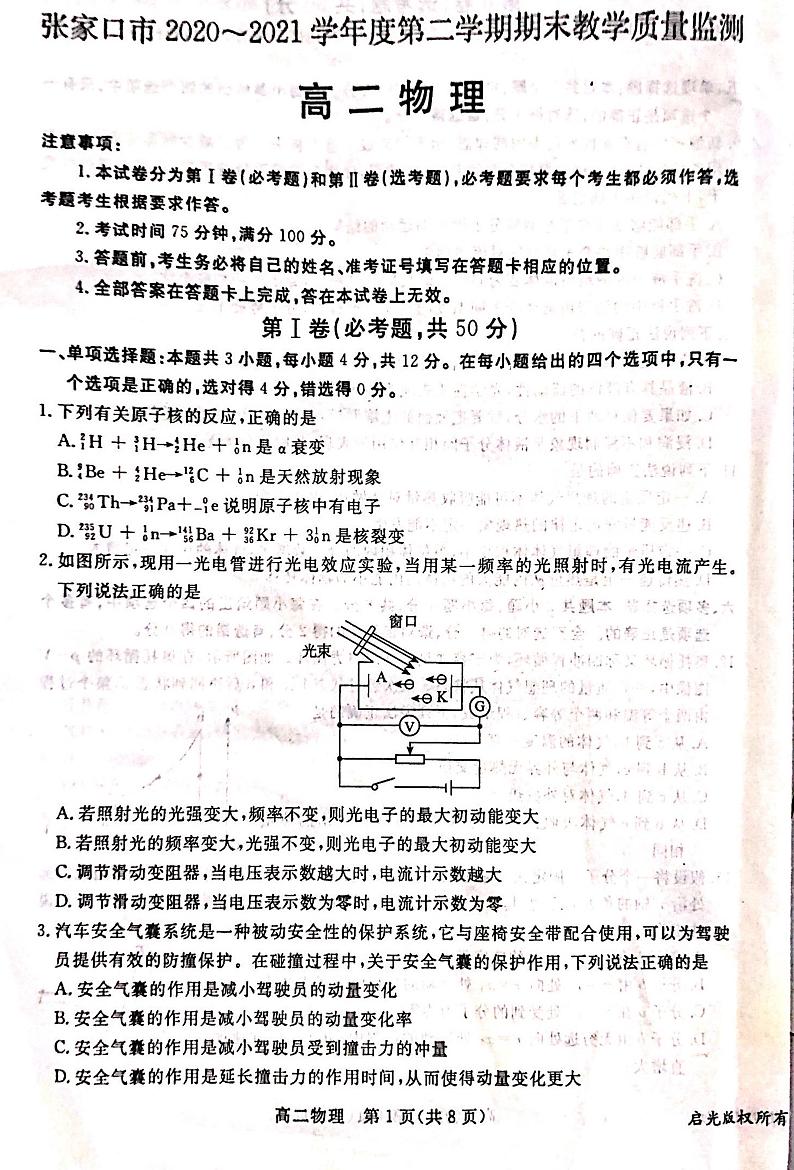 张家口市2020~2021学年度第二学期期末教学质量监测
高二物理
注意事项:
1.本试卷分为第Ⅰ卷(必考题)和第Ⅱ卷(选考题),必考题要求每个考生都必须作答,选
考题考生根据要求作答。
2.考试时间75分钟,满分100分。
3.答题前,考生务必将自己的姓名、准考证号填写在答题卡相应的位置。
4.全部答案在答题卡上完成,答在本试卷上无效。
第Ⅰ卷(必考题,共50分)
一、单项选择题:本题共3小题,每小题4分,共12分。在每小题给出的四个选项中,只有一
个选项是正确的,选对得4分,错选得0分。
1.下列有关原子核的反应,正确的是
A.²₁H + ³₁H→⁴₂He + ¹₀n是α衰变
B.⁹₄Be + ⁴₂He→¹²₆C + ¹₀n是天然放射现象
C.²³⁴₉₀Th→²³⁴₉₁Pa+₋⁰₁e说明原子核中有电子
D.²³⁵₉₂U + ¹₀n→¹⁴¹₅₆Ba + ⁹²₃₆Kr + 3¹₀n是核裂变
2.如图所示,现用一光电管进行光电效应实验,当用某一频率的光照射时,有光电流产生。
下列说法正确的是
窗口
光束
A
K
G
V
A.若照射光的光强变大,频率不变,则光电子的最大初动能变大
B.若照射光的频率变大,光强不变,则光电子的最大初动能变大
C.调节滑动变阻器,当电压表示数越大时,电流计示数越大
D.调节滑动变阻器,当电压表示数为零时,电流计示数为零
3.汽车安全气囊系统是一种被动安全性的保护系统,它与座椅安全带配合使用,可以为驾驶
员提供有效的防撞保护。在碰撞过程中,关于安全气囊的保护作用,下列说法正确的是
A.安全气囊的作用是减小驾驶员的动量变化
B.安全气囊的作用是减小驾驶员的动量变化率
C.安全气囊的作用是减小驾驶员受到撞击力的冲量
D.安全气囊的作用是延长撞击力的作用时间,从而使得动量变化更大
高二物理 第1页(共8页)
启光版权所有